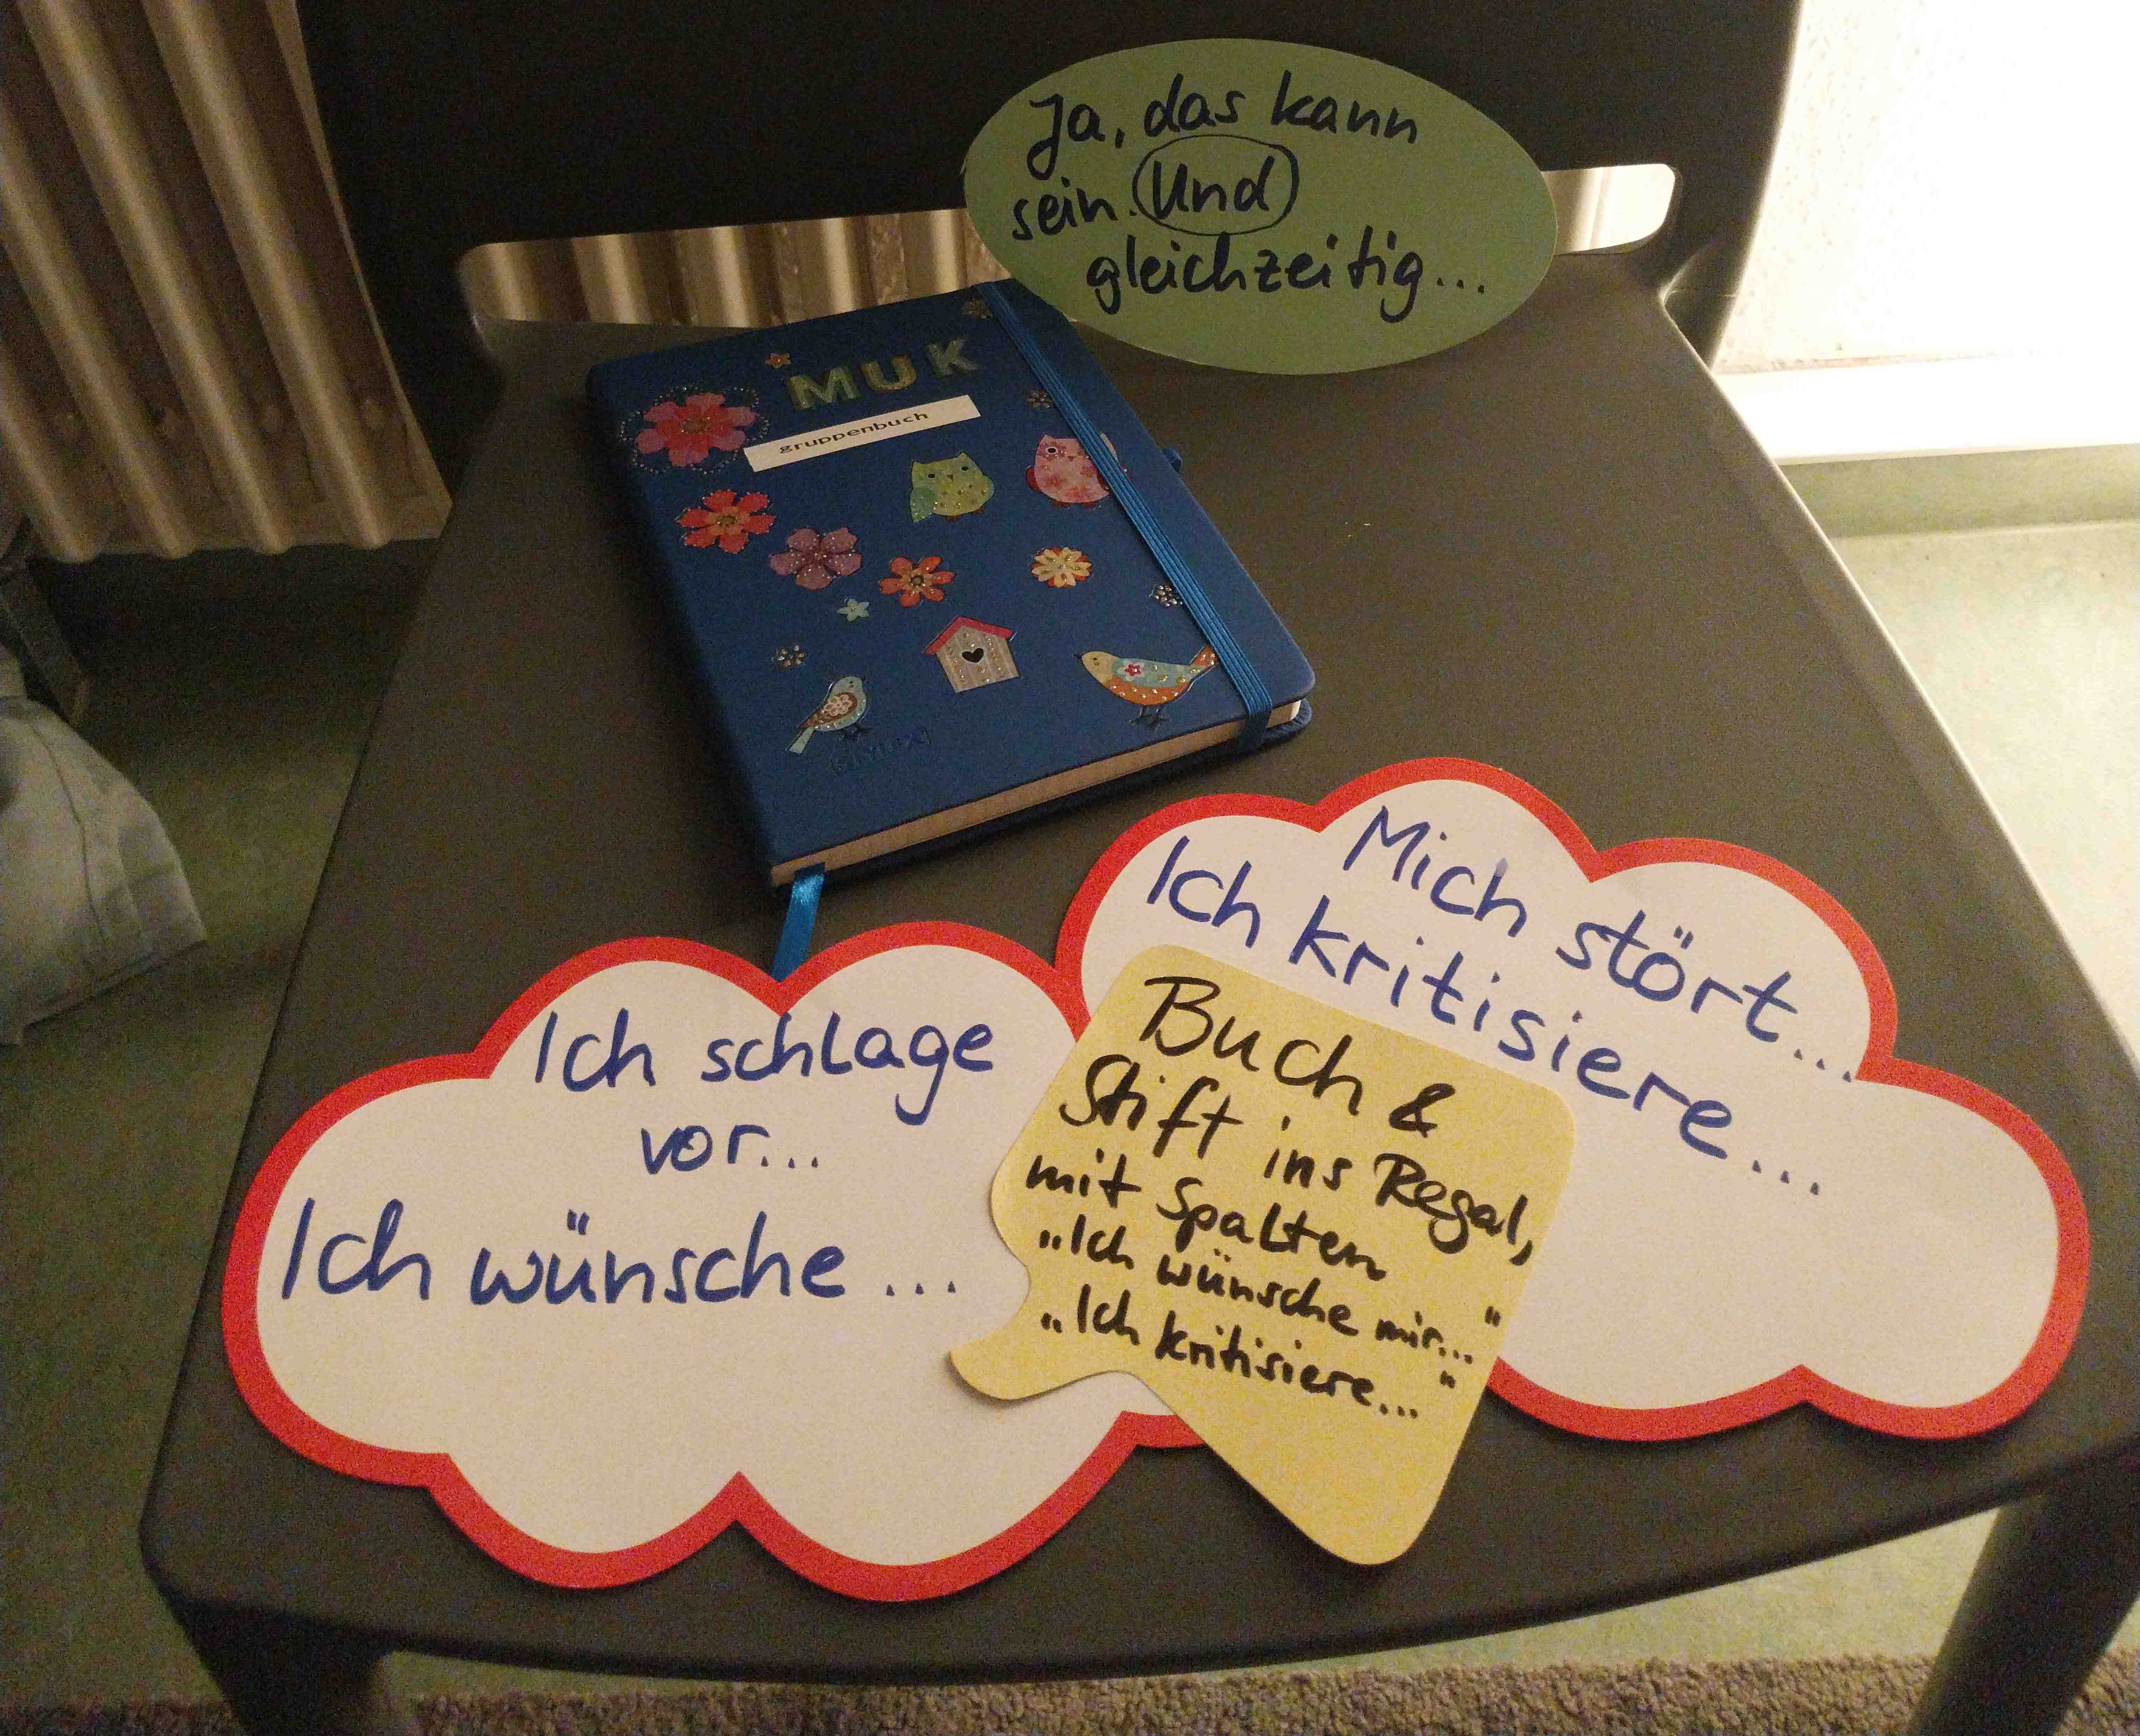 Ja, das kann
sein. Und
gleichzeitig...
MUK
gruppenbuch
Mich stört...
Ich kritisiere...
Ich schlage
vor...
Ich wünsche...
Buch &
Stift ins Regal,
mit Spalten
„Ich wünsche mir..."
„Ich kritisiere..."